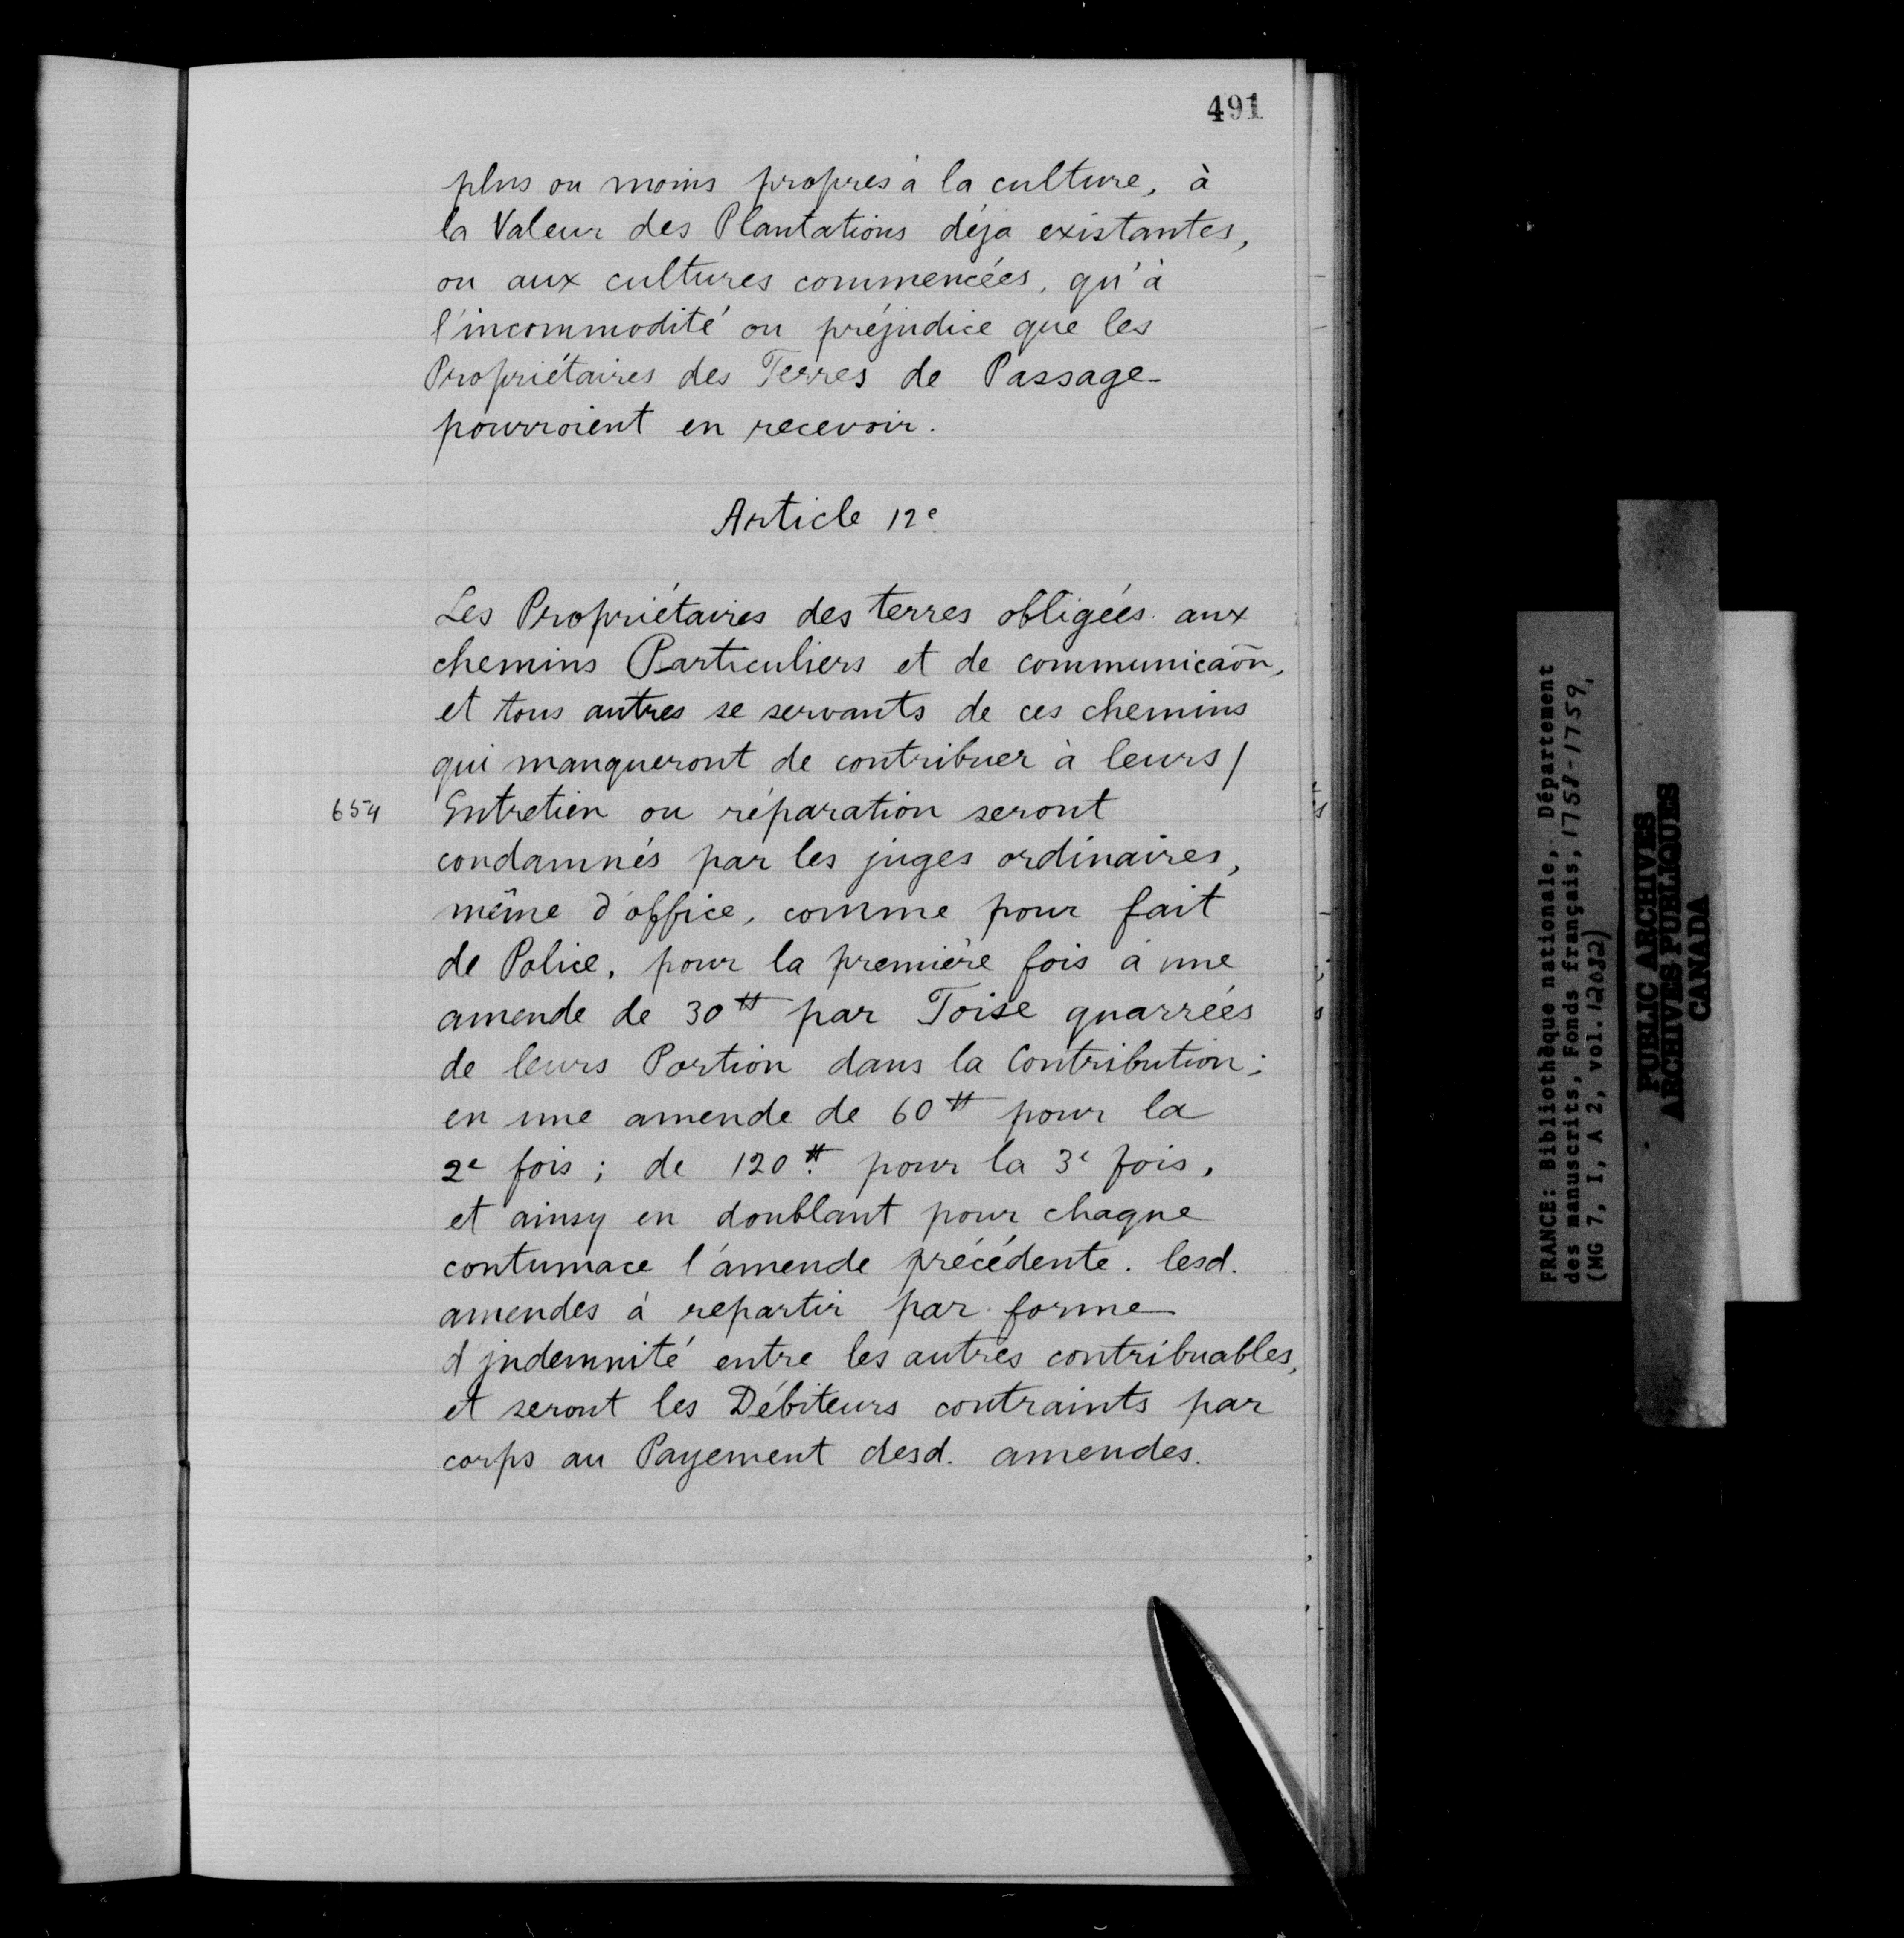 491
plus ou moins propres à la culture, à
la Valeur des Plantations déja existantes,
ou aux cultures commencées, qu'à
l'incommodité ou préjudice que les
Propriétaires des Terres de Passage
pourroient en recevoir.
Article 12e
Les Propriétaires des terres obligées aux
chemins Particuliers et de communicaōn,
et tous autres se servants de ces chemins
qui manqueront de contribuer à leurs /
654 Entretien ou réparation seront
condamnés par les juges ordinaires,
même d'office, comme pour fait
de Police, pour la première fois à une
amende de 30tt par Toise quarrées
de leurs Portion dans la Contribution;
en une amende de 60tt pour la
2e fois; de 120tt pour la 3e fois,
et ainsy en doublant pour chaque
contumace l'amende précédente. lesd.
amendes à repartir par forme
d'jndemnité entre les autres contribuables,
et seront les Débiteurs contraints par
corps au Payement desd. amendes.
FRANCE: Bibliothèque nationale, Département
des manuscrits, Fonds français, 1758-1759,
(MG 7, I, A 2, vol. 12032)
PUBLIC ARCHIVES
ARCHIVES PUBLIQUES
CANADA